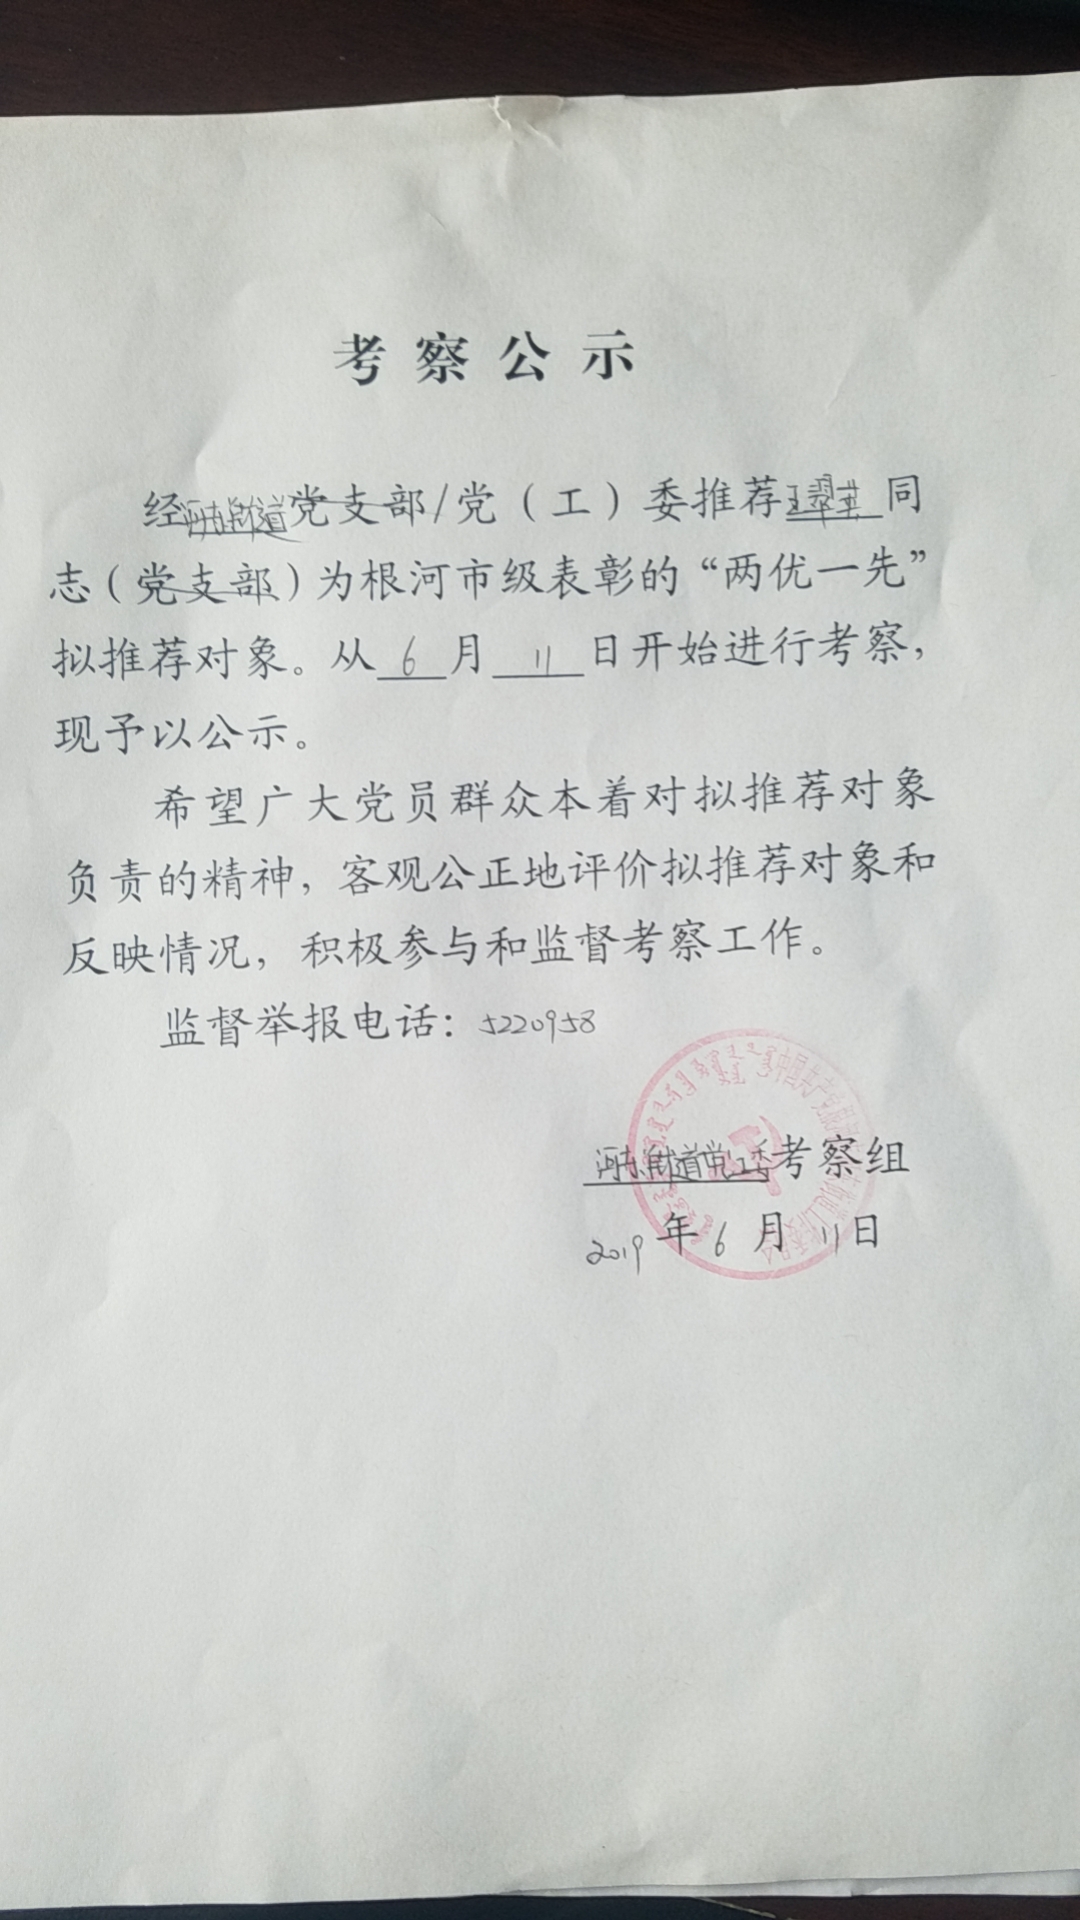 考察公示
经河东街道党支部/党（工）委推荐王翠英同
志（党支部）为根河市级表彰的“两优一先”
拟推荐对象。从6月11日开始进行考察，
现予以公示。
希望广大党员群众本着对拟推荐对象
负责的精神，客观公正地评价拟推荐对象和
反映情况，积极参与和监督考察工作。
监督举报电话：5220958
河东街道党工委考察组
2019年6月11日
中国共产党根河